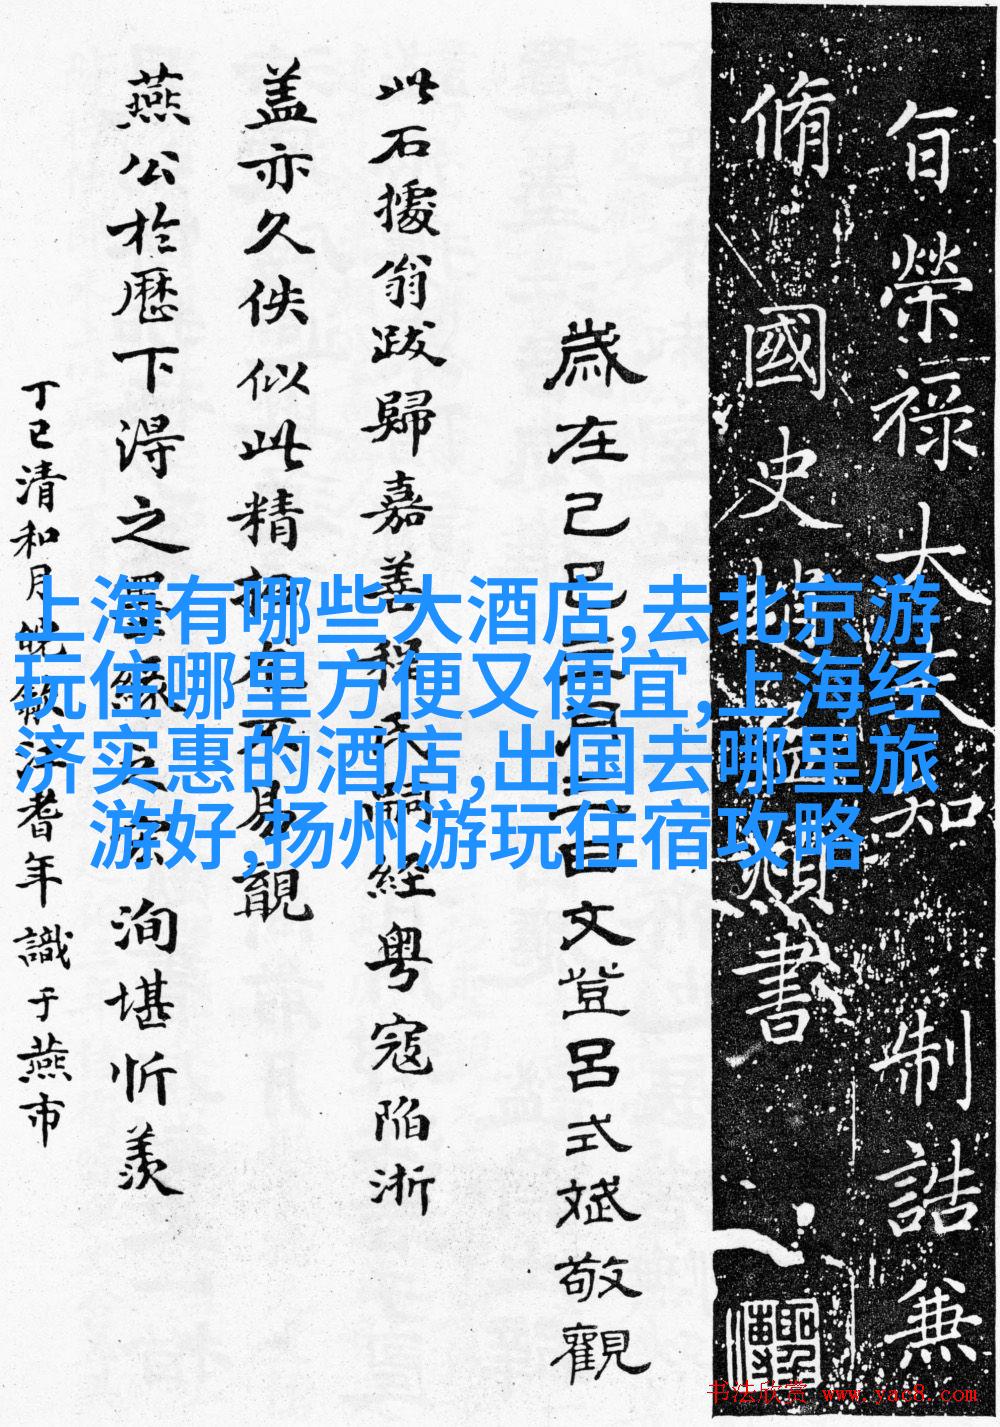 自榮祿大夫知 制誥兼
脩國史趙 書
歲在己巳 月 日文登呂式斌敬觀
此石據翁跋歸嘉善程氏嗣經粤寇陷浙
盖亦久佚似此精拓 不易覯
燕公於歷下淂之墨緣 深洵堪忻羨
丁巳清和月皖歙汪耆年識于燕市
上海有哪些大酒店,去北京游
玩住哪里方便又便宜,上海经
济实惠的酒店,出国去哪里旅
游好,扬州游玩住宿攻略
书法欣赏 www.yac8.com